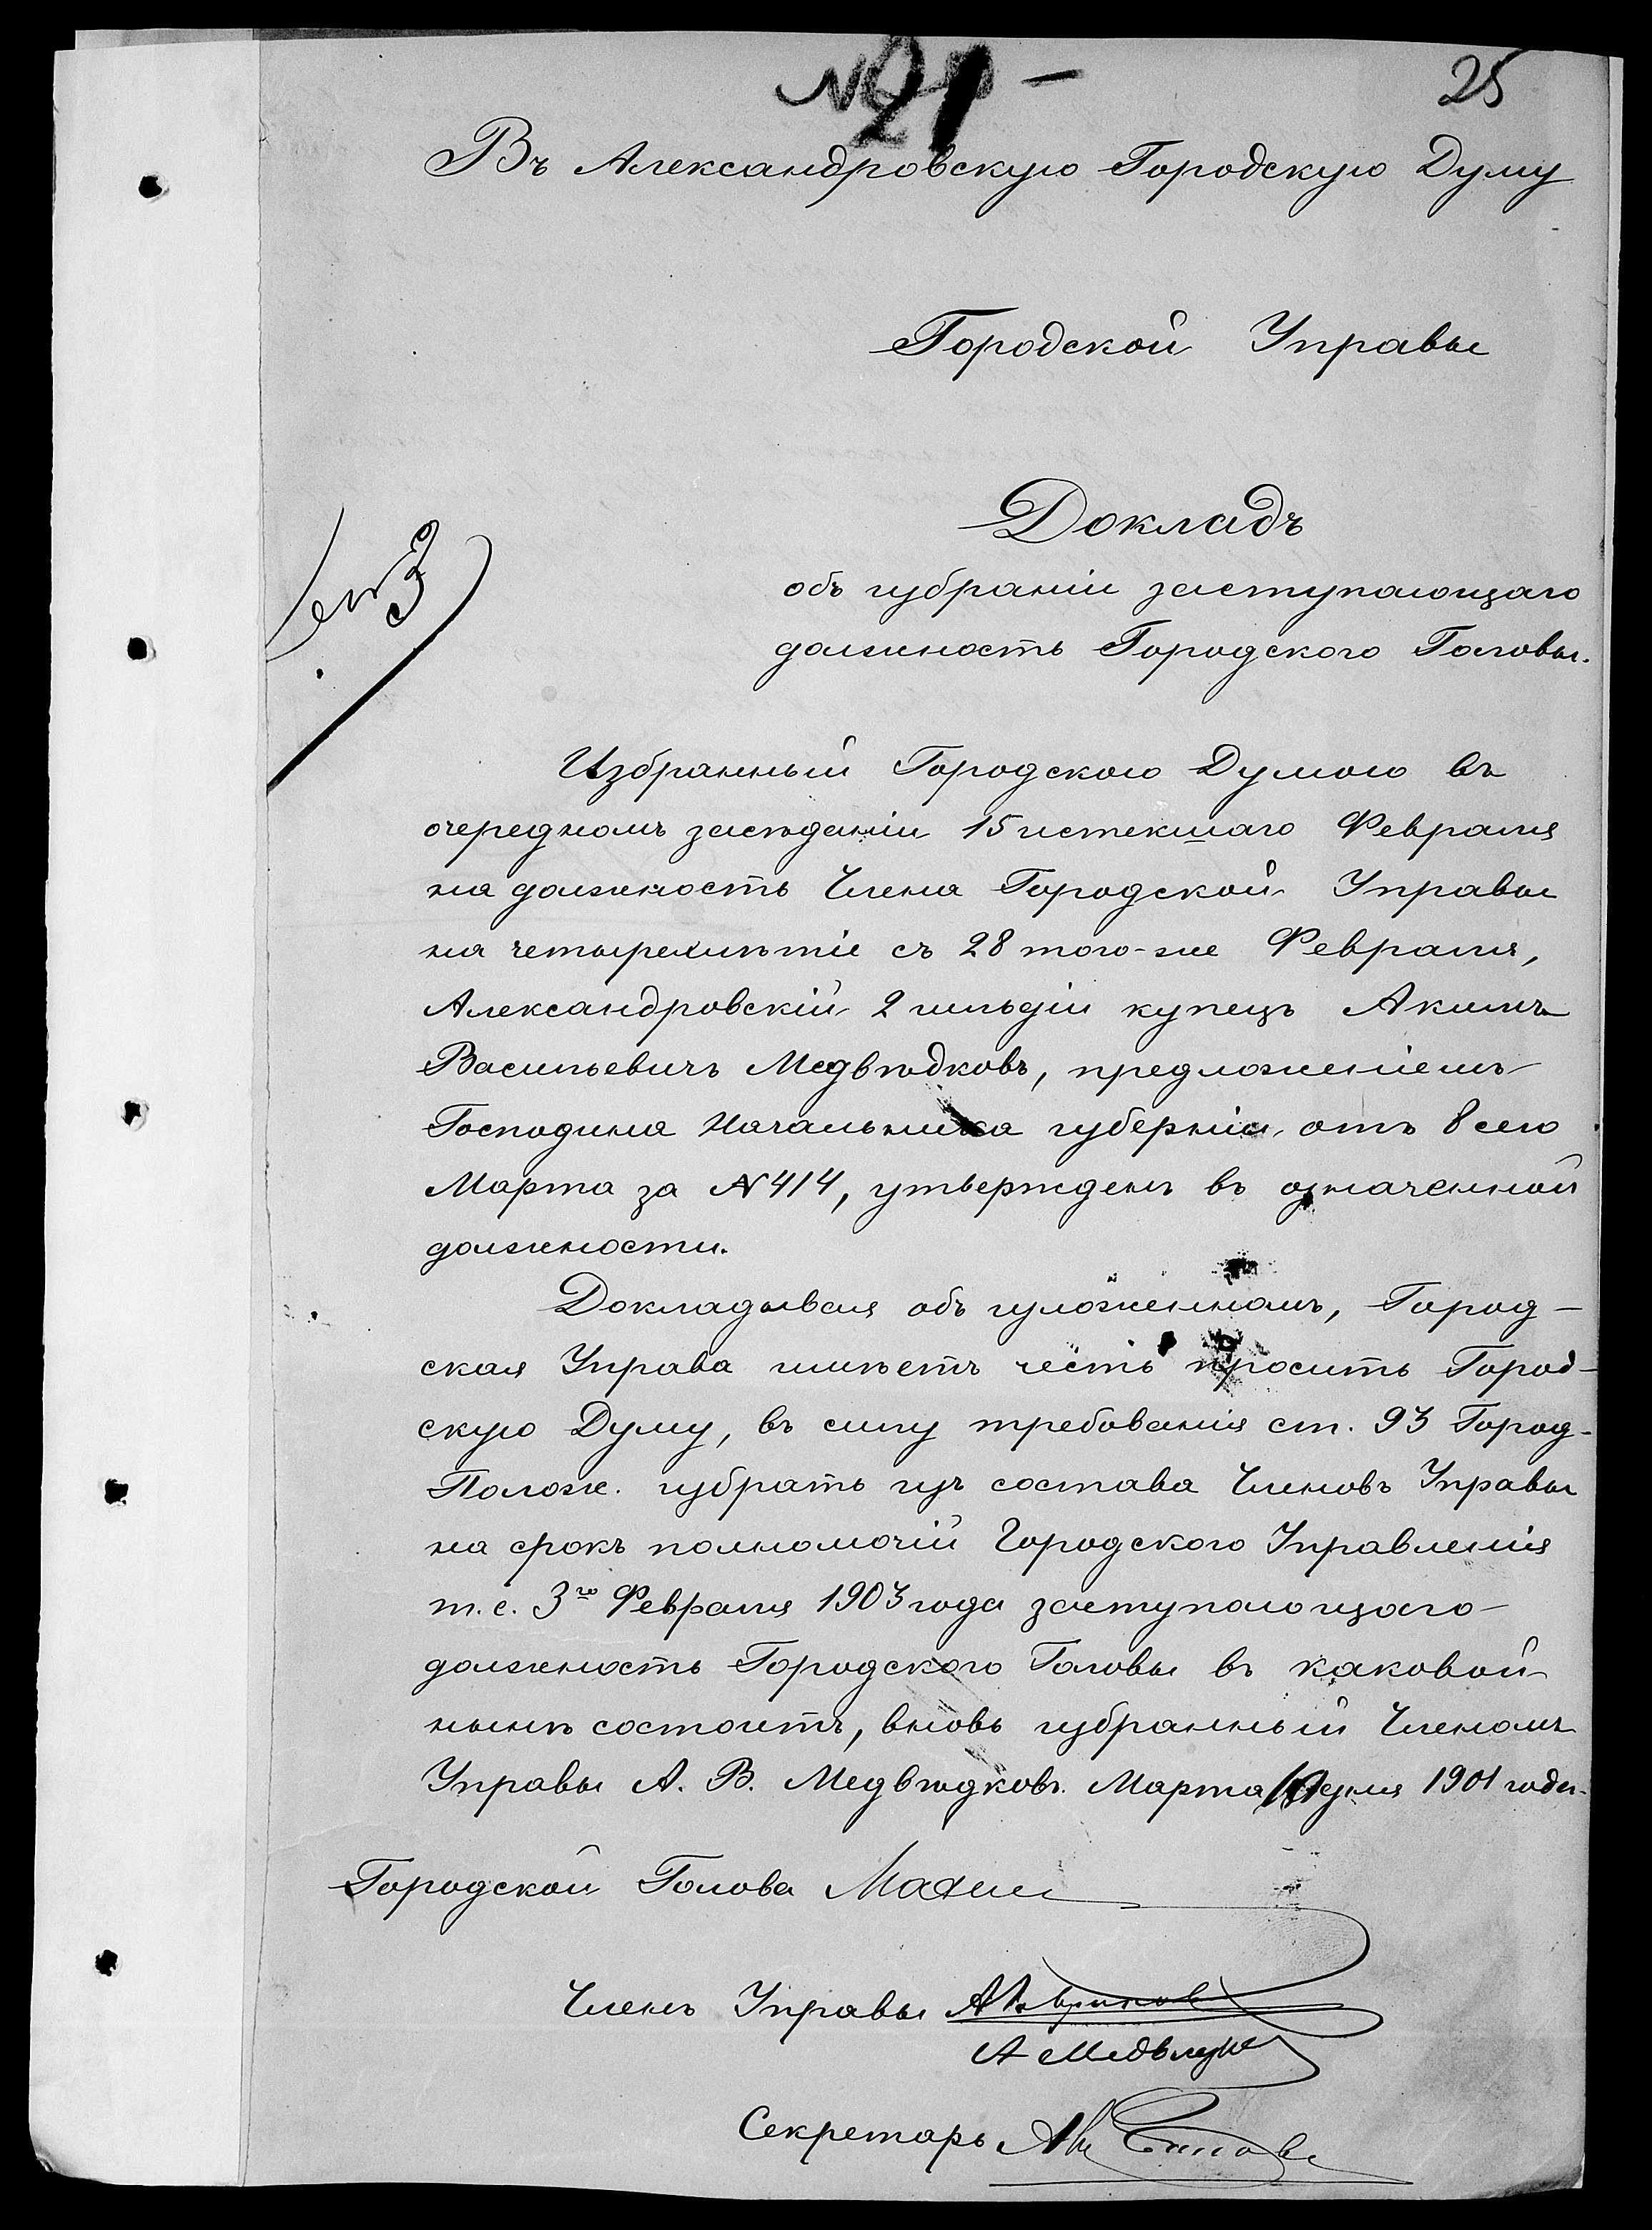 25
Въ Александровскую Городскую Думу
Городской Управы
Докладъ
объ избраніи заступающаго
должность Городского Головы.
Избранный Городскою Думою въ
очередномъ засѣданіи 15 истекшаго Февраля
на должность Члена Городской Управы
на четырехлѣтіе съ 28 того-же Февраля,
Александровскій 2 гильдіи купецъ Акимъ
Васильевичъ Медвѣдковъ, предложеніемъ
Господина Начальника губерніи, отъ 8 сего
Марта за № 414, утвержденъ въ означенной
должности.
Докладывая объ изложенномъ, Город-
ская Управа имѣетъ честь просить Город-
скую Думу, въ силу требованія ст. 93 Город.
Полож. избрать изъ состава Членовъ Управы
на срокъ полномочій Городского Управленія
т.е. 3го Февраля 1903 года заступающаго
должность Городского Головы въ каковой
нынѣ состоитъ, вновь избранный Членомъ
Управы А. В. Медвѣдковъ. Марта дня 1901 года.
Городской Голова
Членъ Управы
А Медвѣдк
Секретарь